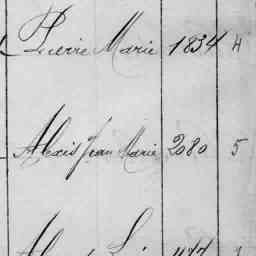 Pierre Marie 1834 4
Alexis Jean Marie 2080 5